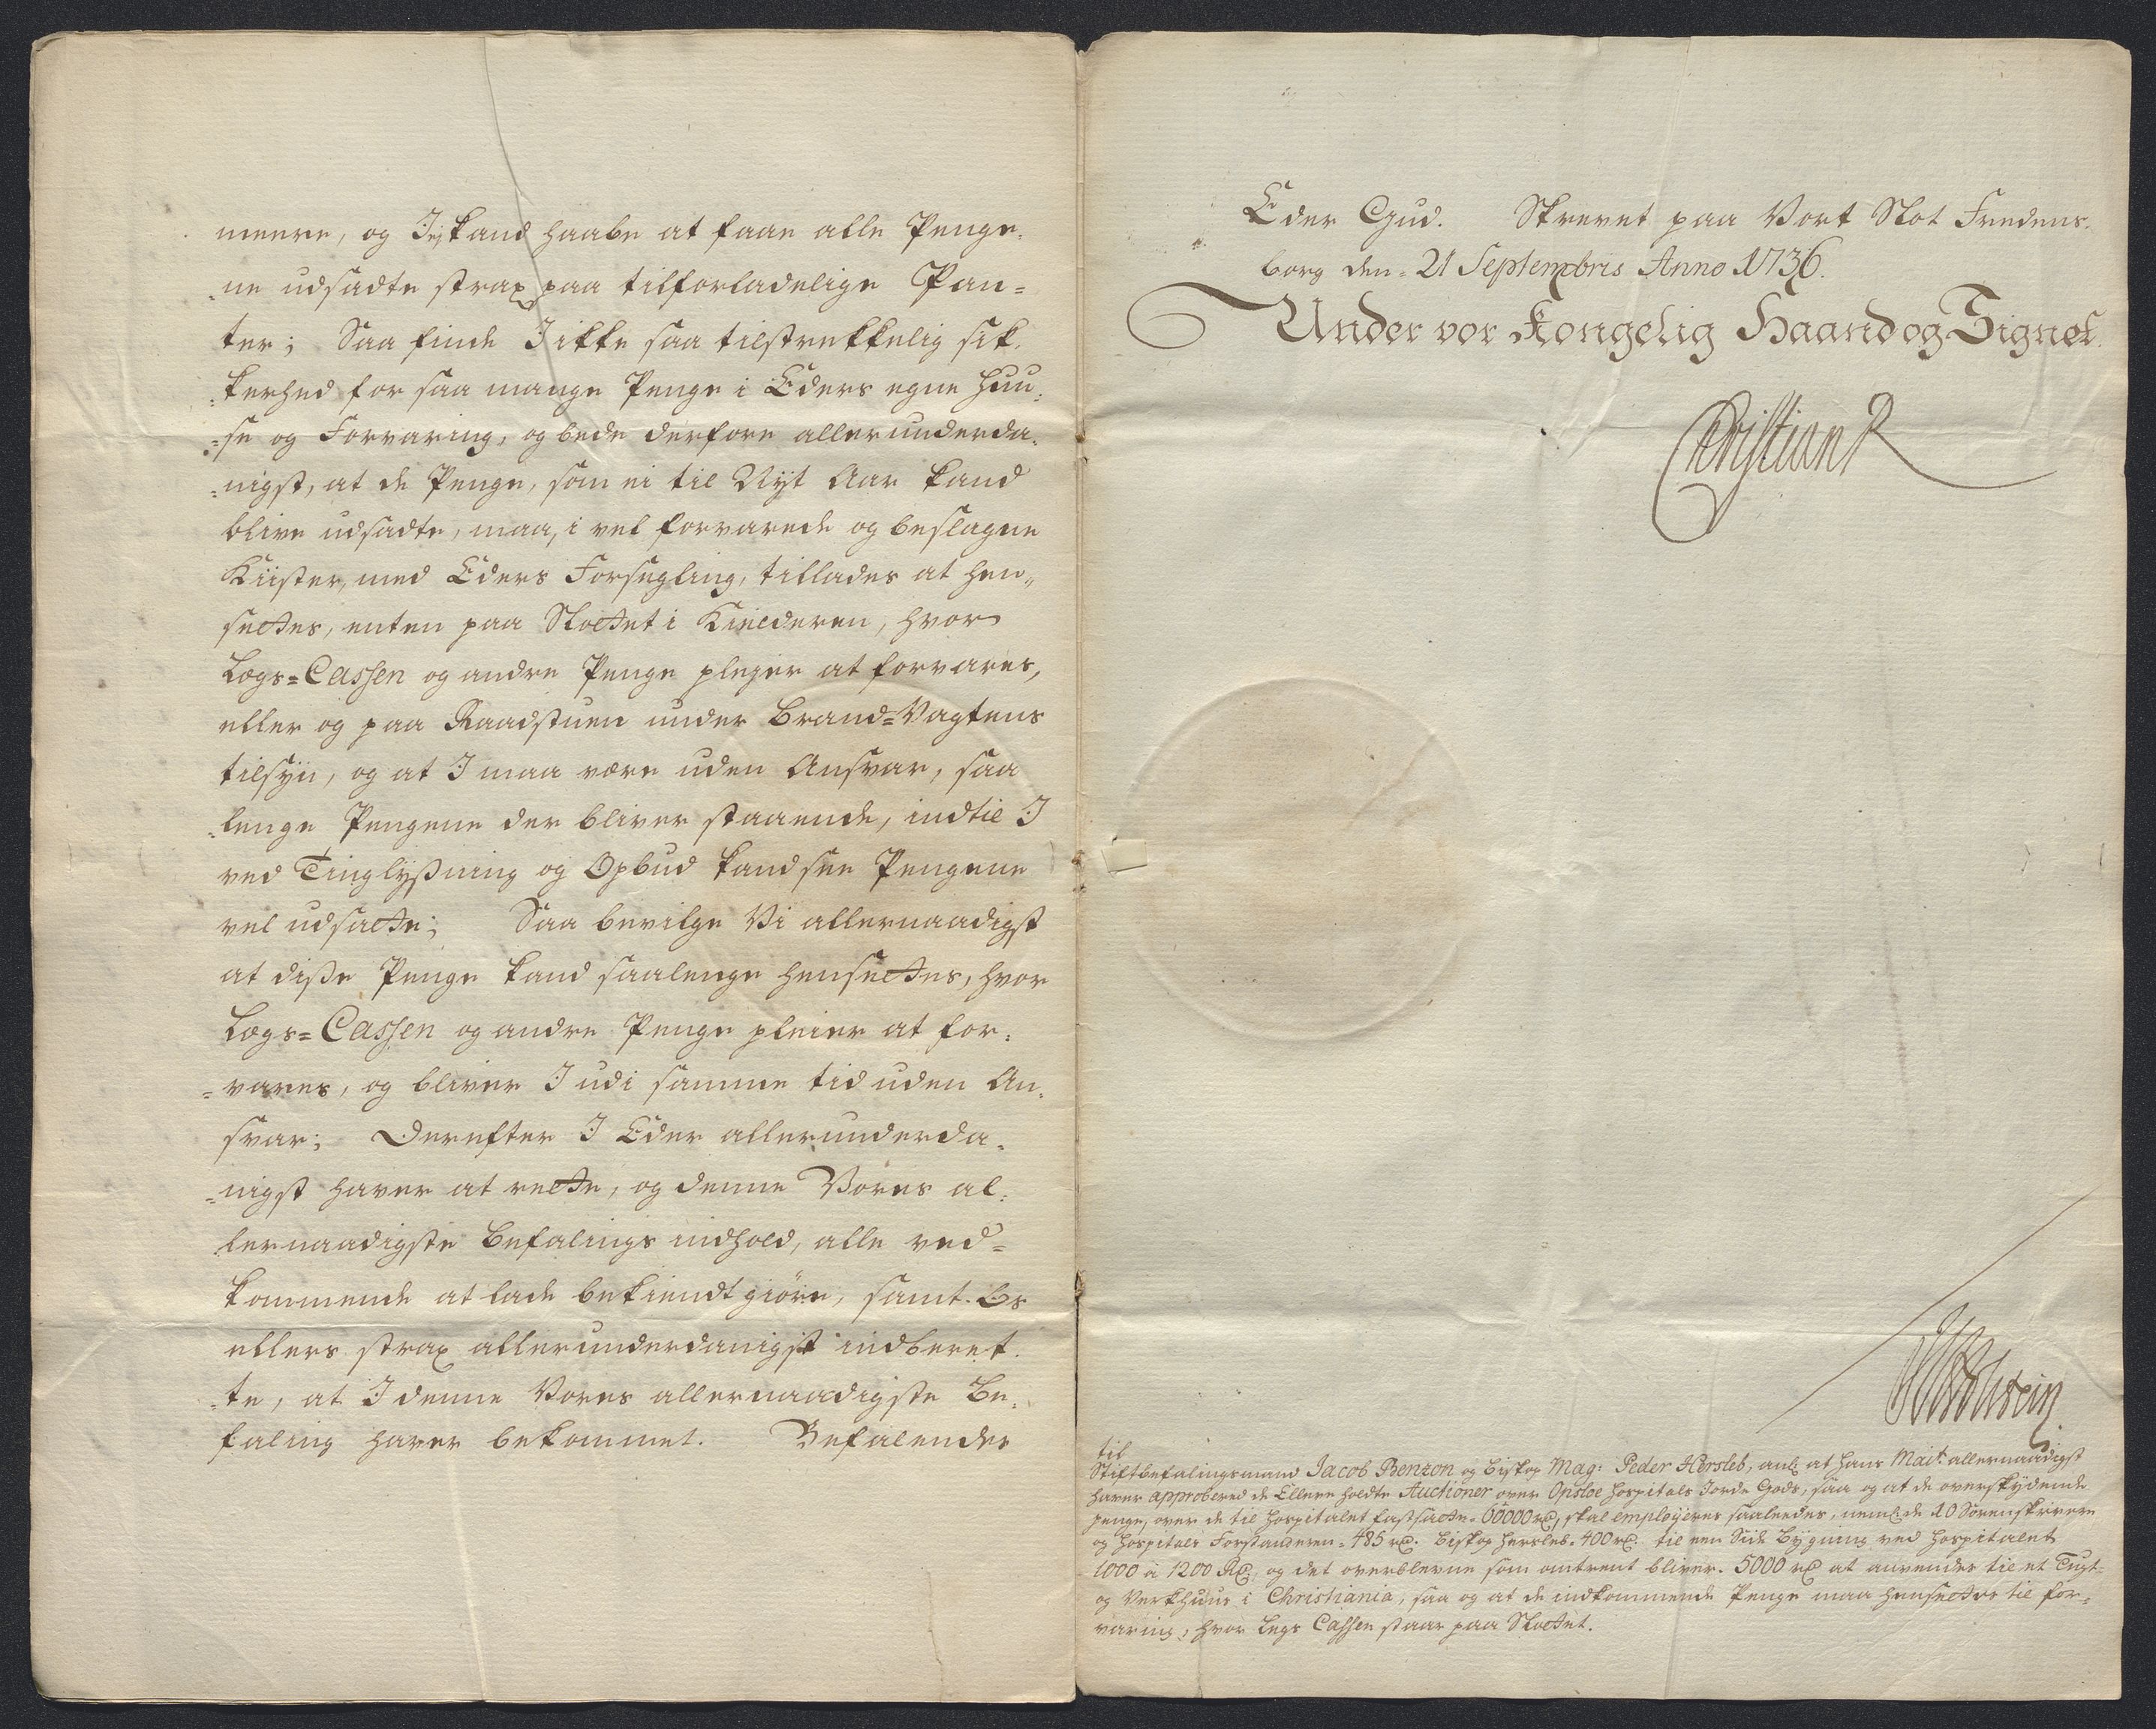 meere, og I ej kand haabe at faae alle Penge-
ne udsadte strax paa tilforladelige Pan=
ter; Saa finde I ikke saa tilstrekkelig sik-
kerhed for saa mange Penge i Eders egne Huu-
=se og Forvaring, og bede derfore allerunderda-
=nigst, at de Penge, som ei til Nyt Aar kand
blive udsadte, maa, i vel forvarede og beslagne
Kiister, med Eders Forsegling, tillades at hen-
settes, enten paa Slottet i Kielderen, hvor
Legs=Cassen og andre Penge plejer at forvares,
eller og paa Raadstuen under Brand=Vagtens
tilsyn, og at I maa være uden Ansvar, saa
lenge Pengene der bliver staaende, indtil I
ved Tinglyßning og Opbud kand see Pengene
vel udsatte; Saa bevilge Vi allernaadigst
at diße Penge kand saalenge hensettes, hvor
Legs=Cassen og andre Penge pleier at for-
=vares, og bliver I udi samme tid uden An-
svar; Derefter I Eder allerunderda-
=nigst haver at rette, og denne Vores al-
lernaadigste Befalings indhold, alle ved=
kommende at lade bekiendtgiøre, samt Os
ellers strax allerunderdanigst indberet-
=te, at I denne Vores allernaadigste Be-
faling haver bekommet. Befalendes
Eder Gud. Skrevet paa Vort Slot Fredens-
borg den 21 Septembris Anno 1736.
Under vor Kongelig Haand og Signet.
Christian R
til
Stiftbefalingsmand Jacob Benzon og Biskop Mag: Peder Hersleb, anl: at Hans Mait: allernaadigst
haver approbered de holdte Auctioner over Opsloe Hospitals Jorde Gods, saa og at de overskydende
penge, over de til Hospitalet fastsatte 60000 rd, skal employeres saaledes, neml: de 10 Sorenskrivere
og Hospitals Forstanderen 485 rd. Biskop Hersleb 400 rd. til een Side Bygning ved Hospitalet
1000 à 1200 Rd, og det overblevne som omtrent bliver 5000 rd at anvendes til et Tugt-
og Verkhuus i Christiania, saa og at de indkommende Penge maa hensettes til for-
varing, hvor Legs Cassen staar paa Slottet.